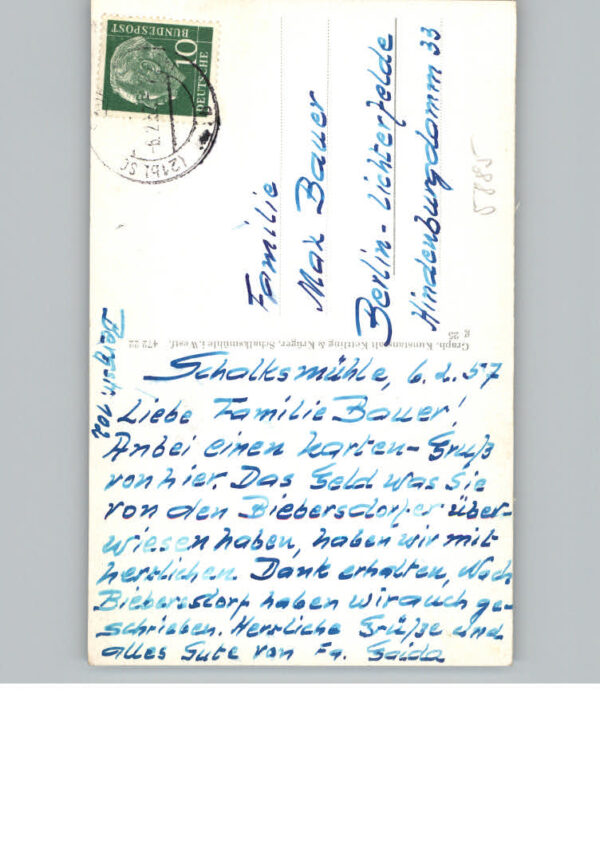 Schalksmühle, 6.2.57
Liebe Familie Bauer!
Anbei einen Karten-Gruß
von hier. Das Geld was Sie
von den Biebersdorfer über-
wiesen haben, haben wir mit
herzlichen. Dank erhalten, Nach
Biebersdorf haben wir auch ge-
schrieben. Herzliche Grüße und
alles Gute von Fa. Gaida
Bergstr. 102
Familie
Max Bauer
Berlin-Lichterfelde
Hindenburgdamm 33
5885
Graph. Kunstanstalt Kettling & Krüger, Schalksmühle i. Westf. 472 22
g 25
DEUTSCHE
BUNDESPOST
10
(21b) SC